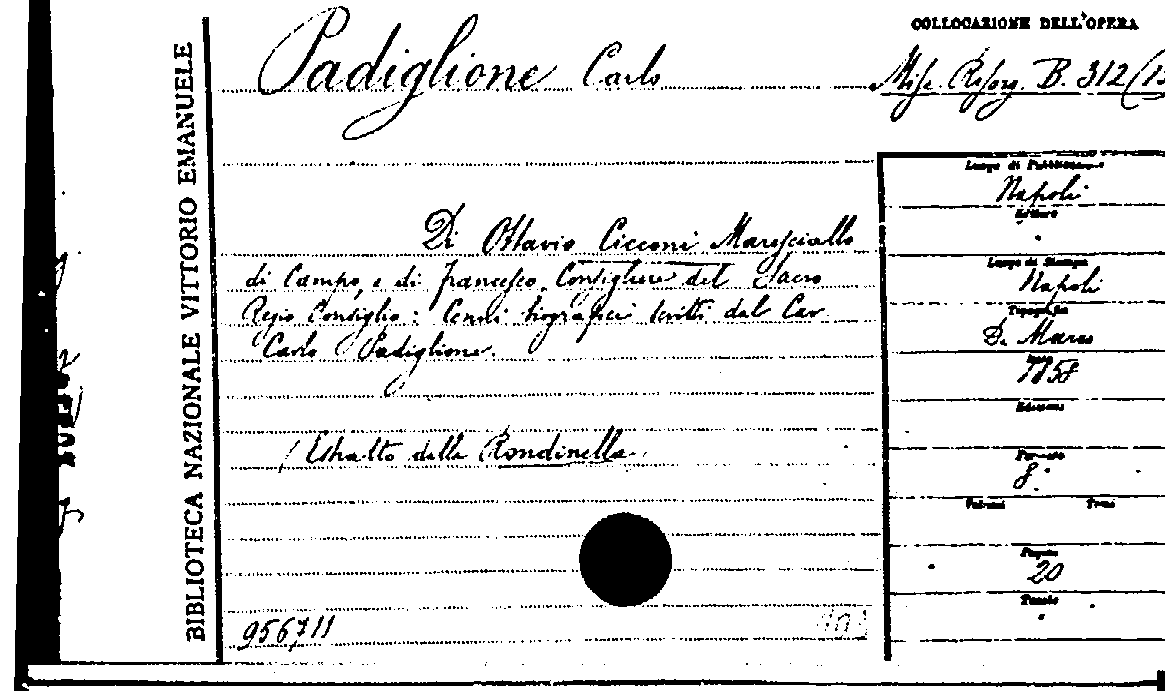 BIBLIOTECA NAZIONALE VITTORIO EMANUELE
Padiglione Carlo
COLLOCAZIONE DELL'OPERA
B. 312
Di Ottavio Cicconi Maresciallo
di Campo, e di Francesco, Consigliere del Sacro
Regio Consiglio: Cenni biografici scritti dal Cav.
Carlo Padiglione.
(Estratto dalla Rondinella
956711
Luogo di Pubblicazione
Napoli
Editore
Luogo di Stampa
Napoli
Tipografia
De Marco
Anno
1858
Edizione
Formato
8°
Volumi Tomi
Pagine
20
Tavole